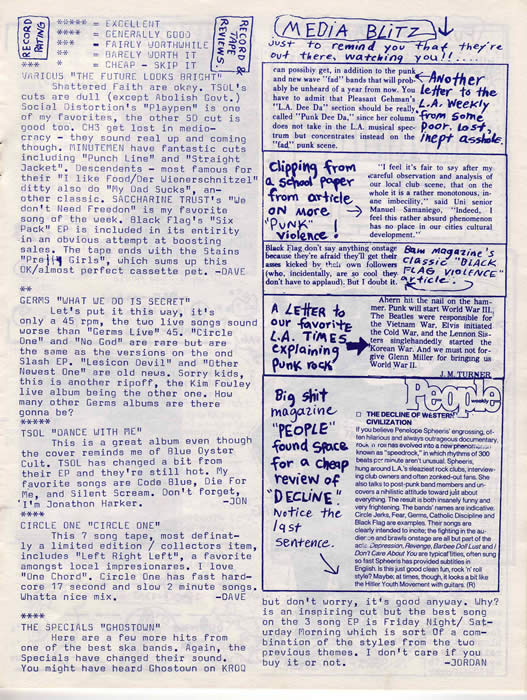 RECORD
RATING
***** = EXCELLENT
**** = GENERALLY GOOD
*** = FAIRLY WORTHWHILE
** = BARELY WORTH IT
* = CHEAP - SKIP IT
RECORD &
TAPE
REVIEWS
*** *
VARIOUS "THE FUTURE LOOKS BRIGHT"
Shattered Faith are okay. TSOL's
cuts are dull (except Abolish Govt.)
Social Distortion's "Playpen" is one
of my favorites, the other SD cut is
good too. CH3 get lost in medio-
cracy - they sound real up and coming
though. MINUTEMEN have fantastic cuts
including "Punch Line" and "Straight
Jacket". Descendents - most famous for
their "I like Food/Der Wienerschnitzel"
ditty also do "My Dad Sucks", an-
other classic. SACCHARINE TRUST's "We
don't Need Freedon" is my favorite
song of the week. Black Flag's "Six
Pack" EP is included in its entirity
in an obvious attempt at boosting
sales. The tape ends with the Stains
"Pretty Girls", which sums up this
OK/almost perfect cassette pet. -DAVE
**
GERMS "WHAT WE DO IS SECRET"
Let's put it this way, it's
only a 45 rpm, the two live songs sound
worse than "Germs Live" 45. "Circle
One" and "No God" are rare but are
the same as the versions on the ond
Slash EP. "Lesicon Devil" and "Other
Newest One" are old news. Sorry kids,
this is another ripoff, the Kim Fowley
live album being the other one. How
many other Germs albums are there
gonna be?
*****
TSOL "DANCE WITH ME"
This is a great album even though
the cover reminds me of Blue Oyster
Cult. TSOL has changed a bit from
their EP and they're still hot. My
favorite songs are Code Blue, Die For
Me, and Silent Scream. Don't forget,
'I'm Jonathon Harker. -JON
****
CIRCLE ONE "CIRCLE ONE"
This 7 song tape, most definat-
ly a limited edition / collectors item,
includes "Left Right Left", a favorite
amongst local impresionares. I love
"One Chord". Circle One has fast hard-
core 17 second and slow 2 minute songs.
Whatta nice mix. -DAVE
****
THE SPECIALS "GHOSTOWN"
Here are a few more hits from
one of the best ska bands. Again, the
Specials have changed their sound.
You might have heard Ghostown on KROQ
MEDIA BLITZ
just to remind you that they're
out there, watching you!!....
can possibly get, in addition to the punk
and new wave "fad" bands that will prob-
ably be unheard of a year from now. You
have to admit that Pleasant Gehman's
"L.A. Dee Da" section should be really
called "Punk Dee Da," since her column
does not take in the L.A. musical spec-
trum but concentrates instead on the
"fad" punk scene.
Another
letter to the
L.A. Weekly
from some
poor, lost,
inept asshole.
Clipping from
a school paper
from article
on more
"PUNK"
violence!
"I feel it's fair to say after my
careful observation and analysis of
our local club scene, that on the
whole it is a rather monotonous, in-
ane imbecility," said Uni senior
Manuel Samaniego, "Indeed, I
feel this rather absurd phenomenon
has no place in our cities cultural
development."
Black Flag don't say anything onstage
because they're afraid they'll get their
asses kicked by their own followers
(who, incidentally, are so cool they
don't have to applaud). But I doubt it.
Bam magazine's
classic "BLACK
FLAG VIOLENCE"
article.
A LETTER to
our favorite
L.A. TIMES
explaining
Punk rock
Ahern hit the nail on the ham-
mer. Punk will start World War III.
The Beatles were responsible for
the Vietnam War, Elvis initiated
the Cold War, and the Lennon Sis-
ters singlehandedly started the
Korean War. And we must not for-
give Glenn Miller for bringing us
World War II.
J. M. TURNER
Big shit
magazine
"PEOPLE"
found space
for a cheap
review of
"DECLINE"
Notice the
last
sentence.
People
weekly
THE DECLINE OF WESTERN
CIVILIZATION
If you believe Penelope Spheeris' engrossing, of-
ten hilarious and always outrageous documentary,
rock 'n' roll has evolved into a new phenomenon
known as "speedrock," in which rhythms of 300
beats per minute aren't unusual. Spheeris,
hung around L.A.'s sleaziest rock clubs, interview-
ing club owners and often zonked-out fans. She
also talks to post-punk band members and un-
covers a nihilistic attitude toward just about
everything. The result is both insanely funny and
very frightening. The bands' names are indicative:
Circle Jerks, Fear, Germs, Catholic Discipline and
Black Flag are examples. Their songs are
clearly intended to note; the fighting in the au-
dience and brawls onstage are all but part of the
acts. Depression, Revenge, Barbee Doll Lust and I
Don't Care About You are typical titles, often sung
so fast Spheeris has provided subtitles in
English. Is this just good clean fun, rock 'n' roll
style? Maybe; at times, though, it looks a bit like
the Hitler Youth Movement with guitars. (R)
but don't worry, it's good anyway. Why?
is an inspiring cut but the best song
on the 3 song EP is Friday Night/ Sat-
urday Morning which is sort Of a com-
bination of the styles from the two
previous themes. I don't care if you
buy it or not. -JORDAN